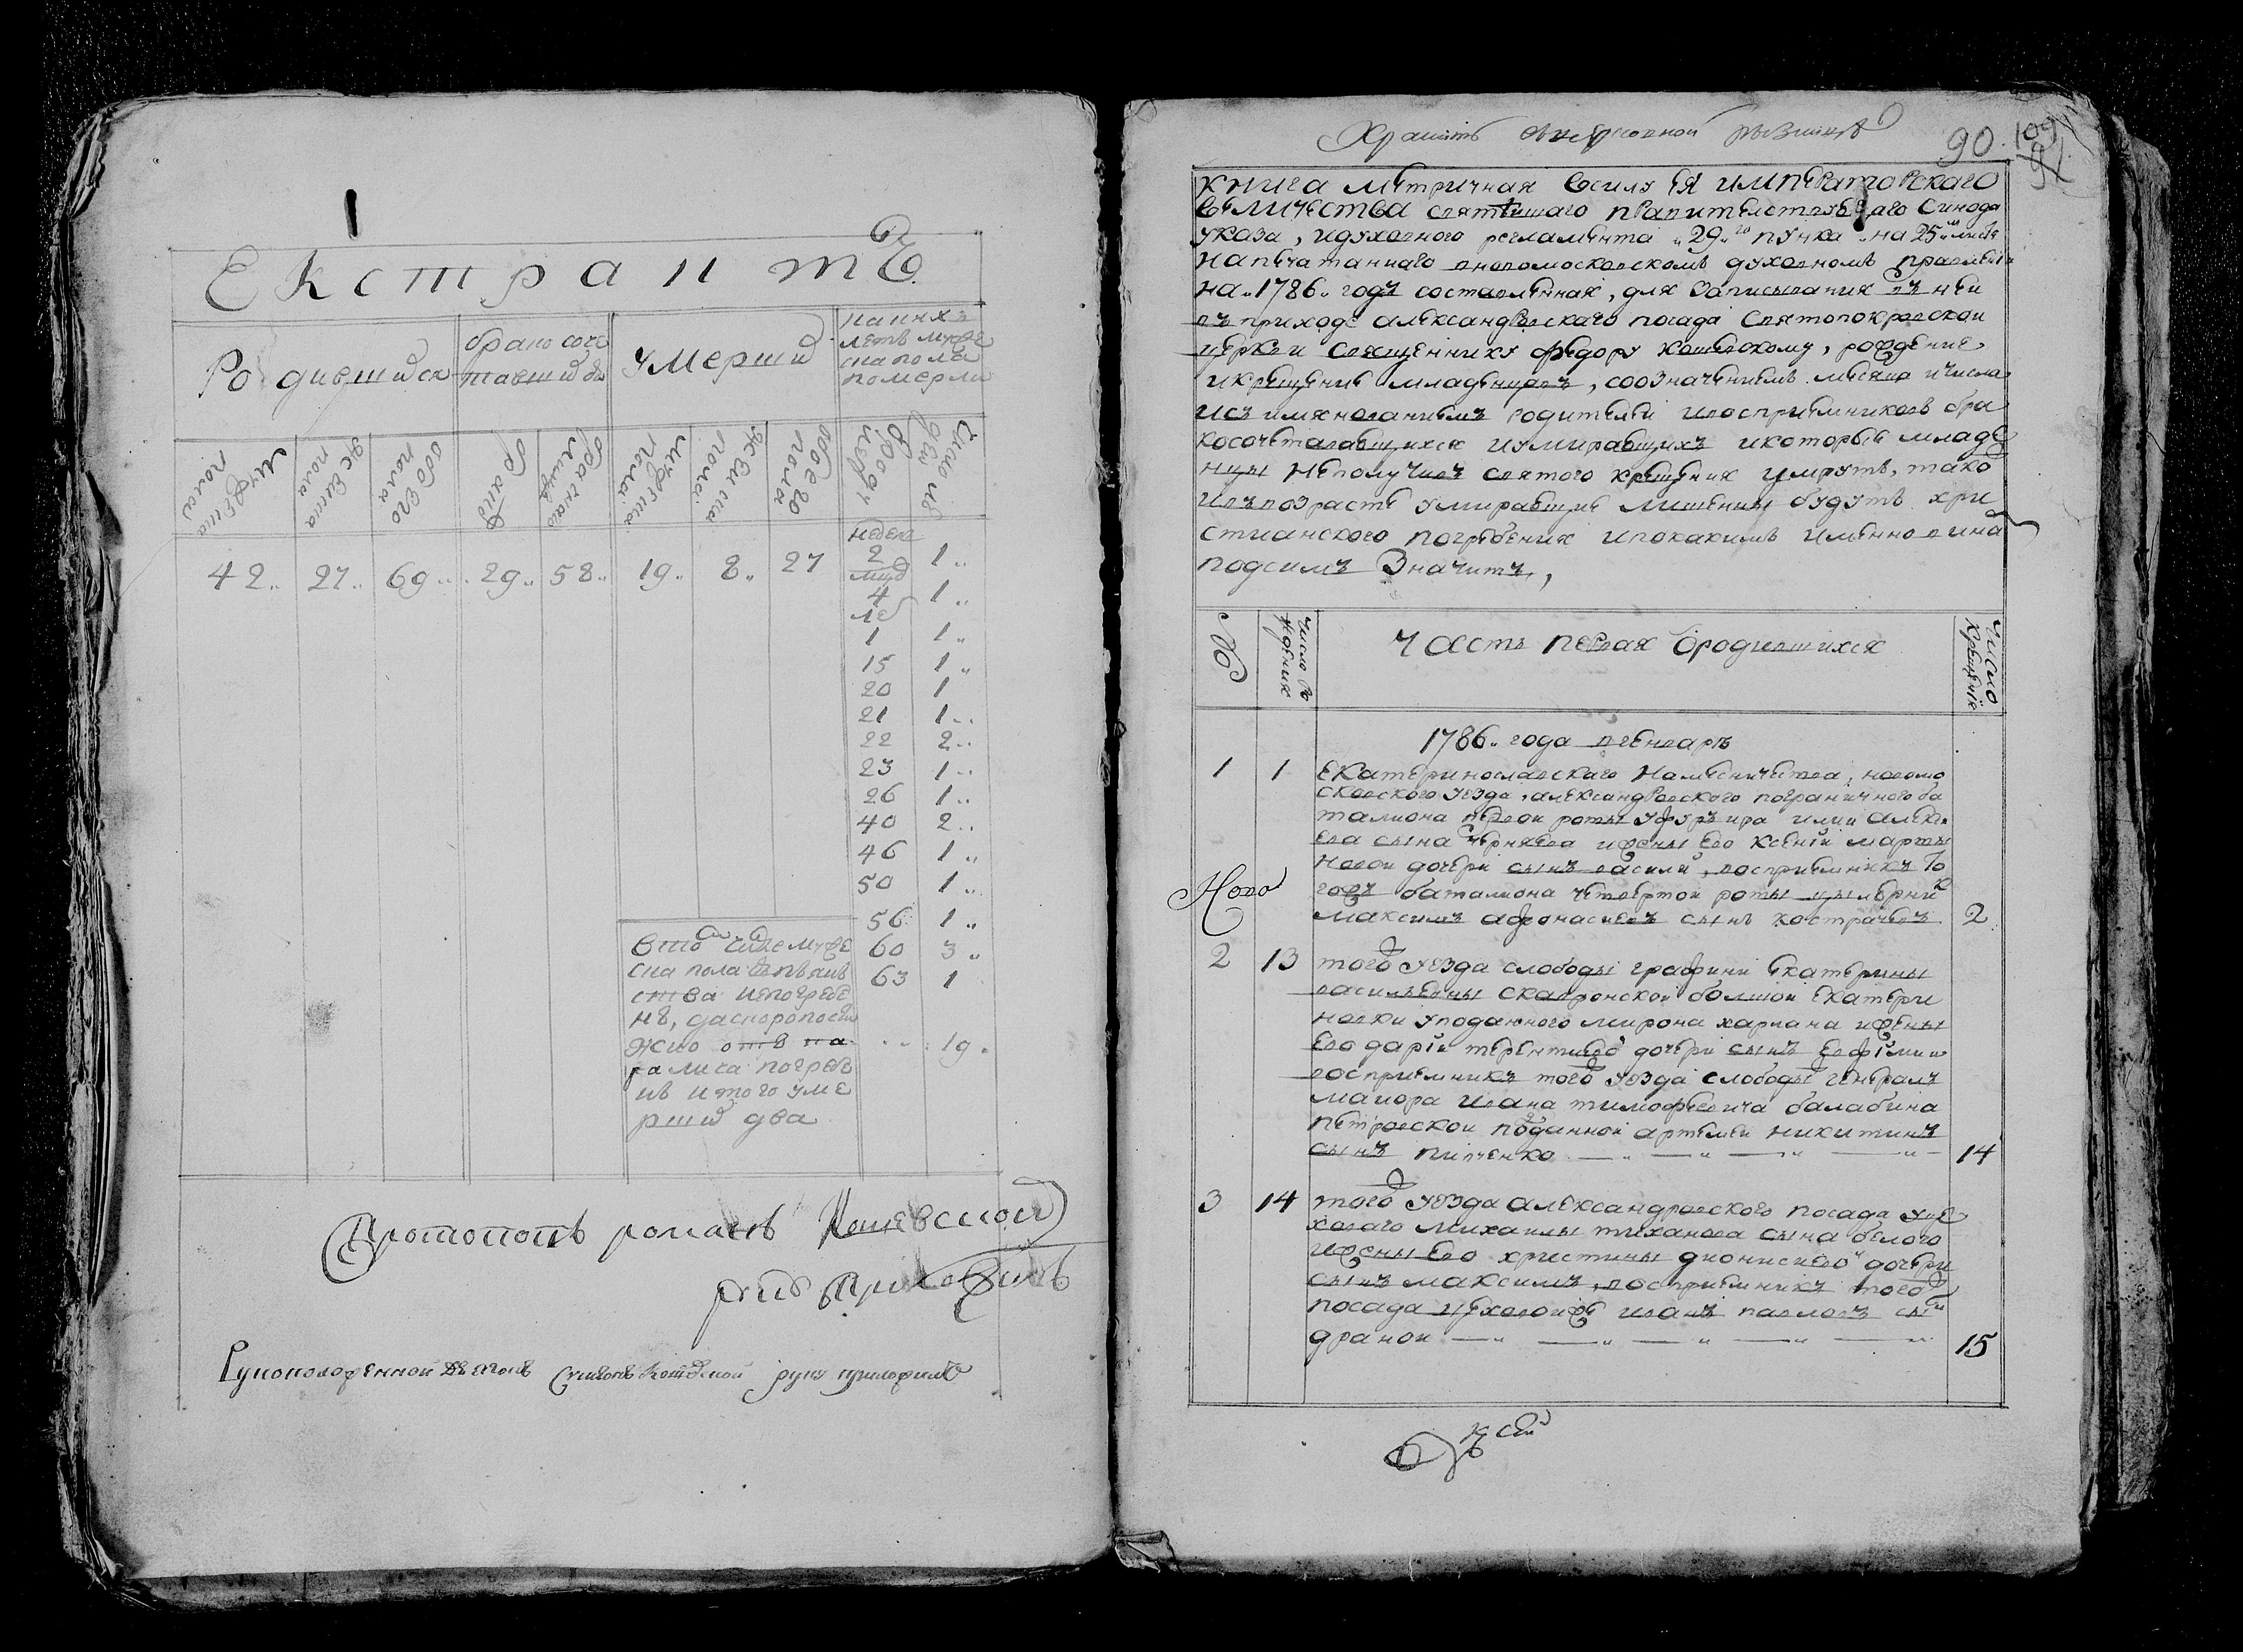 Екстрактъ
Родившихся
брако соче
тавшихся
умершихъ
каких
летъ мужс
ска пола
померли
мужеска
пола
женска
пола
обоего
пола
бракъ
брачных
лицъ
мужеска
пола
женска
пола
обоего
пола
от роду
лет
число
неделъ
2 1
4 1
1 1
15 1
20 1
21 1
22 2
23 1
26 1
40 2
46 1
50 1
56 1
60 3
63 1
42 27 69 29 58 19 8 27
ска пола
19
ршихъ два
Протопопъ романъ Кошевской
руку приложилъ
Рукоположенной дьяконъ руку приложилъ
Хранить въ церковной ризнице
90. 109
91
книга метричная всилу ея императорского
величества святейшаго правительствующаго синода
указа, идуховного регламента 29го пункта на 25м листе
напечатаннаго вновомосковскомъ духовномъ правлении
на 1786 годъ составленная, для записывания въ ней
въ приходе александровскаго посада святопокровской
церкви священнику федору кошевскому, рождение
икрещение младенцовъ, сообзначениемъ месяца ичисла
исъ имянованиемъ родителей ивосприемниковъ бра
косочетавающихся иумирающихъ икоторые младе
нцы неполучивъ святого крещения умрутъ, тако
ивъвозрасте умирающие лишены будутъ хри
стианского погребения ипокакимъ именно вина
подсимъ значитъ,
№
число ро
ждения
часть первая ородившихся
число
крещения
1786 года вгенваръ
1 1 екатеринославскаго наместничества, новомо
сковского уезда, александровского пограничного ба
талиона первой роты фурьира илии алексе
ева сына черняева ижены его ксении марты
новой дочери сынъ василий, восприемникъ То
гожъ баталиона четвертой роты цылюрник
максимъ афонасиевъ сынъ костричевъ 2
Ново
2 13 того уезда слободы графини екатерины
василъевны скавронской болшой екатери
новки уподанного мирона харпана ижены
его дарии терентиево дочери сынъ евфимии
восприемникъ того уезда слободы генералъ
маиора ивана тимофеевича балабина
петровской поданной артемей никитинъ
сынъ пилченко 14
3 14 того уезда александровского посада цехе
ховаго михаилы тиханова сына белого
ижены его христины дионисиево дочери
сынъ максимъ, восприемникъ того
посада цеховойже иванъ павловъ сын
драной 15